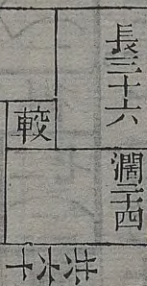 長三十六 濶二十四
較